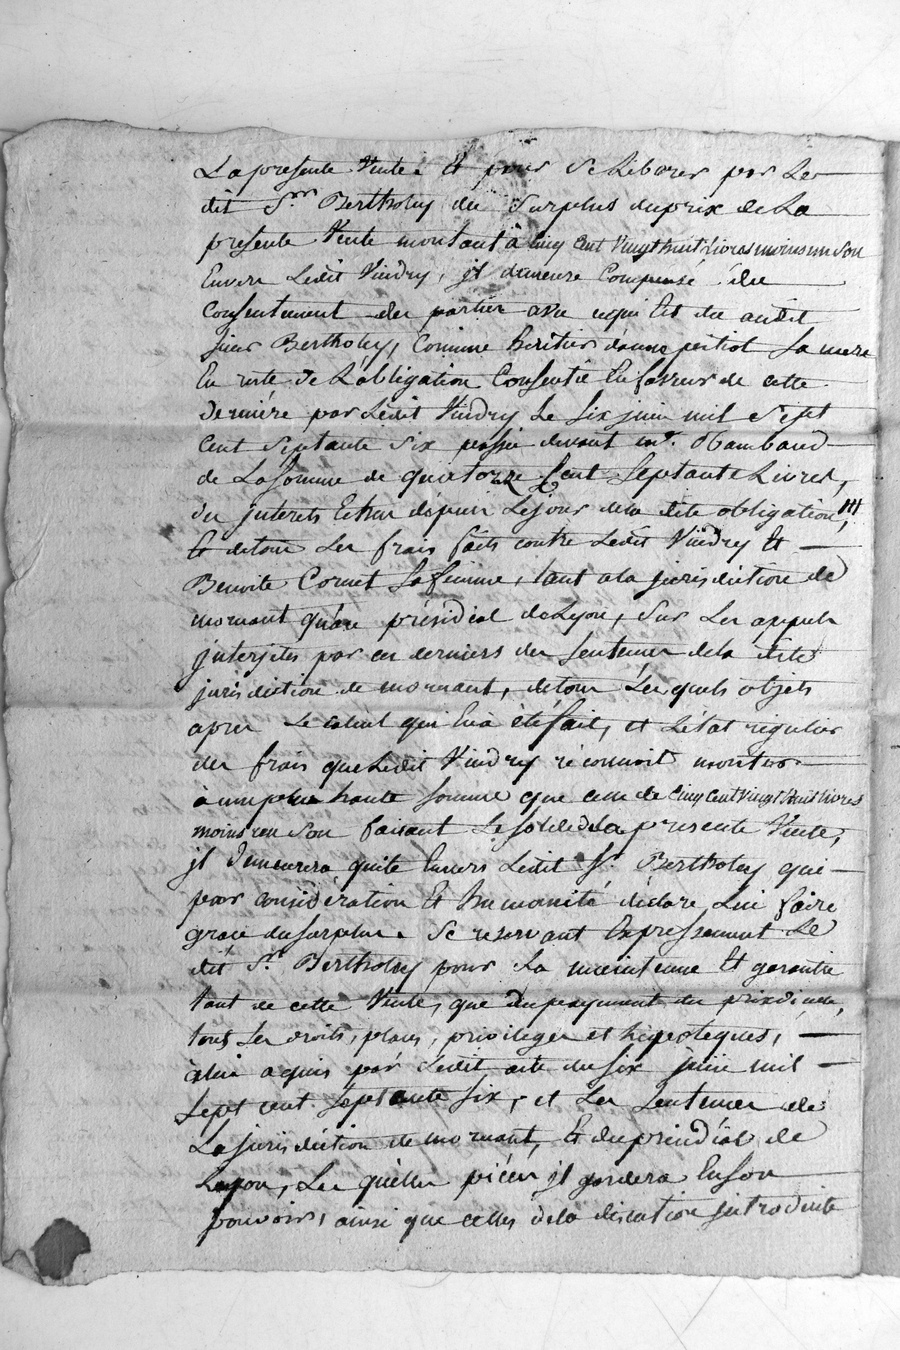 La presente Vente. Et pour se Liberer par Le
dit S.r Bertholey du Surplus du prix de La
presente Vente montant à Cinq Cent Vingt huit Livres moins un Sou
Envers Ledit Vindry, jl demeure Compensé du
Consentement des parties avec cequi Est du audit
sieur Bertholey, Comme heritier sa mere
En reste de L'obligation Consentie En faveur de cette
derniere par Ledit Vindry Le Six juin mil Sept
Cent Septante Six passée devant m.e
de La Somme de quatorze Cent Septante Livres,
des jnterets Echus depuis Le jour dela dite obligation,
Et detous Les frais faits contre Ledit Vindry Et
Benoite Cornet Sa femme, tant ala jurisdiction de
mornant qu'au présidial deLyon, Sur Les appels
jnterjetés par ces derniers des Sentences dela dite
jurisdiction de mornant, detous Lesquels objets
apres Le calcul qui En a été fait, et L'état régulier
des frais que Ledit Vindry réconnoit monter
à une plus haute Somme que celle de Cinq Cent Vingt huit Livres
moins un Sou faisant Le solde dela presente Vente,
jl demeurera quitte Envers Ledit S.r Bertholey qui
pour considération Et humanité déclare Lui faire
grace du surplus. Se reservant Expressement Le
dit S.r Bertholey pour La maintenue Et garantie
tant de cette Vente, que du payement du prix d'icelle,
tous Les droits, places, privileges et hipoteques,
à lui aquis par Ledit acte du six juin mil
Sept cent Septante Six, et Les Sentences de
La jurisdiction de mornant, Et du présidial de
Lyon, Les quelles pièces jl gardera En son
pouvoir, ainsi que celles dela discution jntroduite